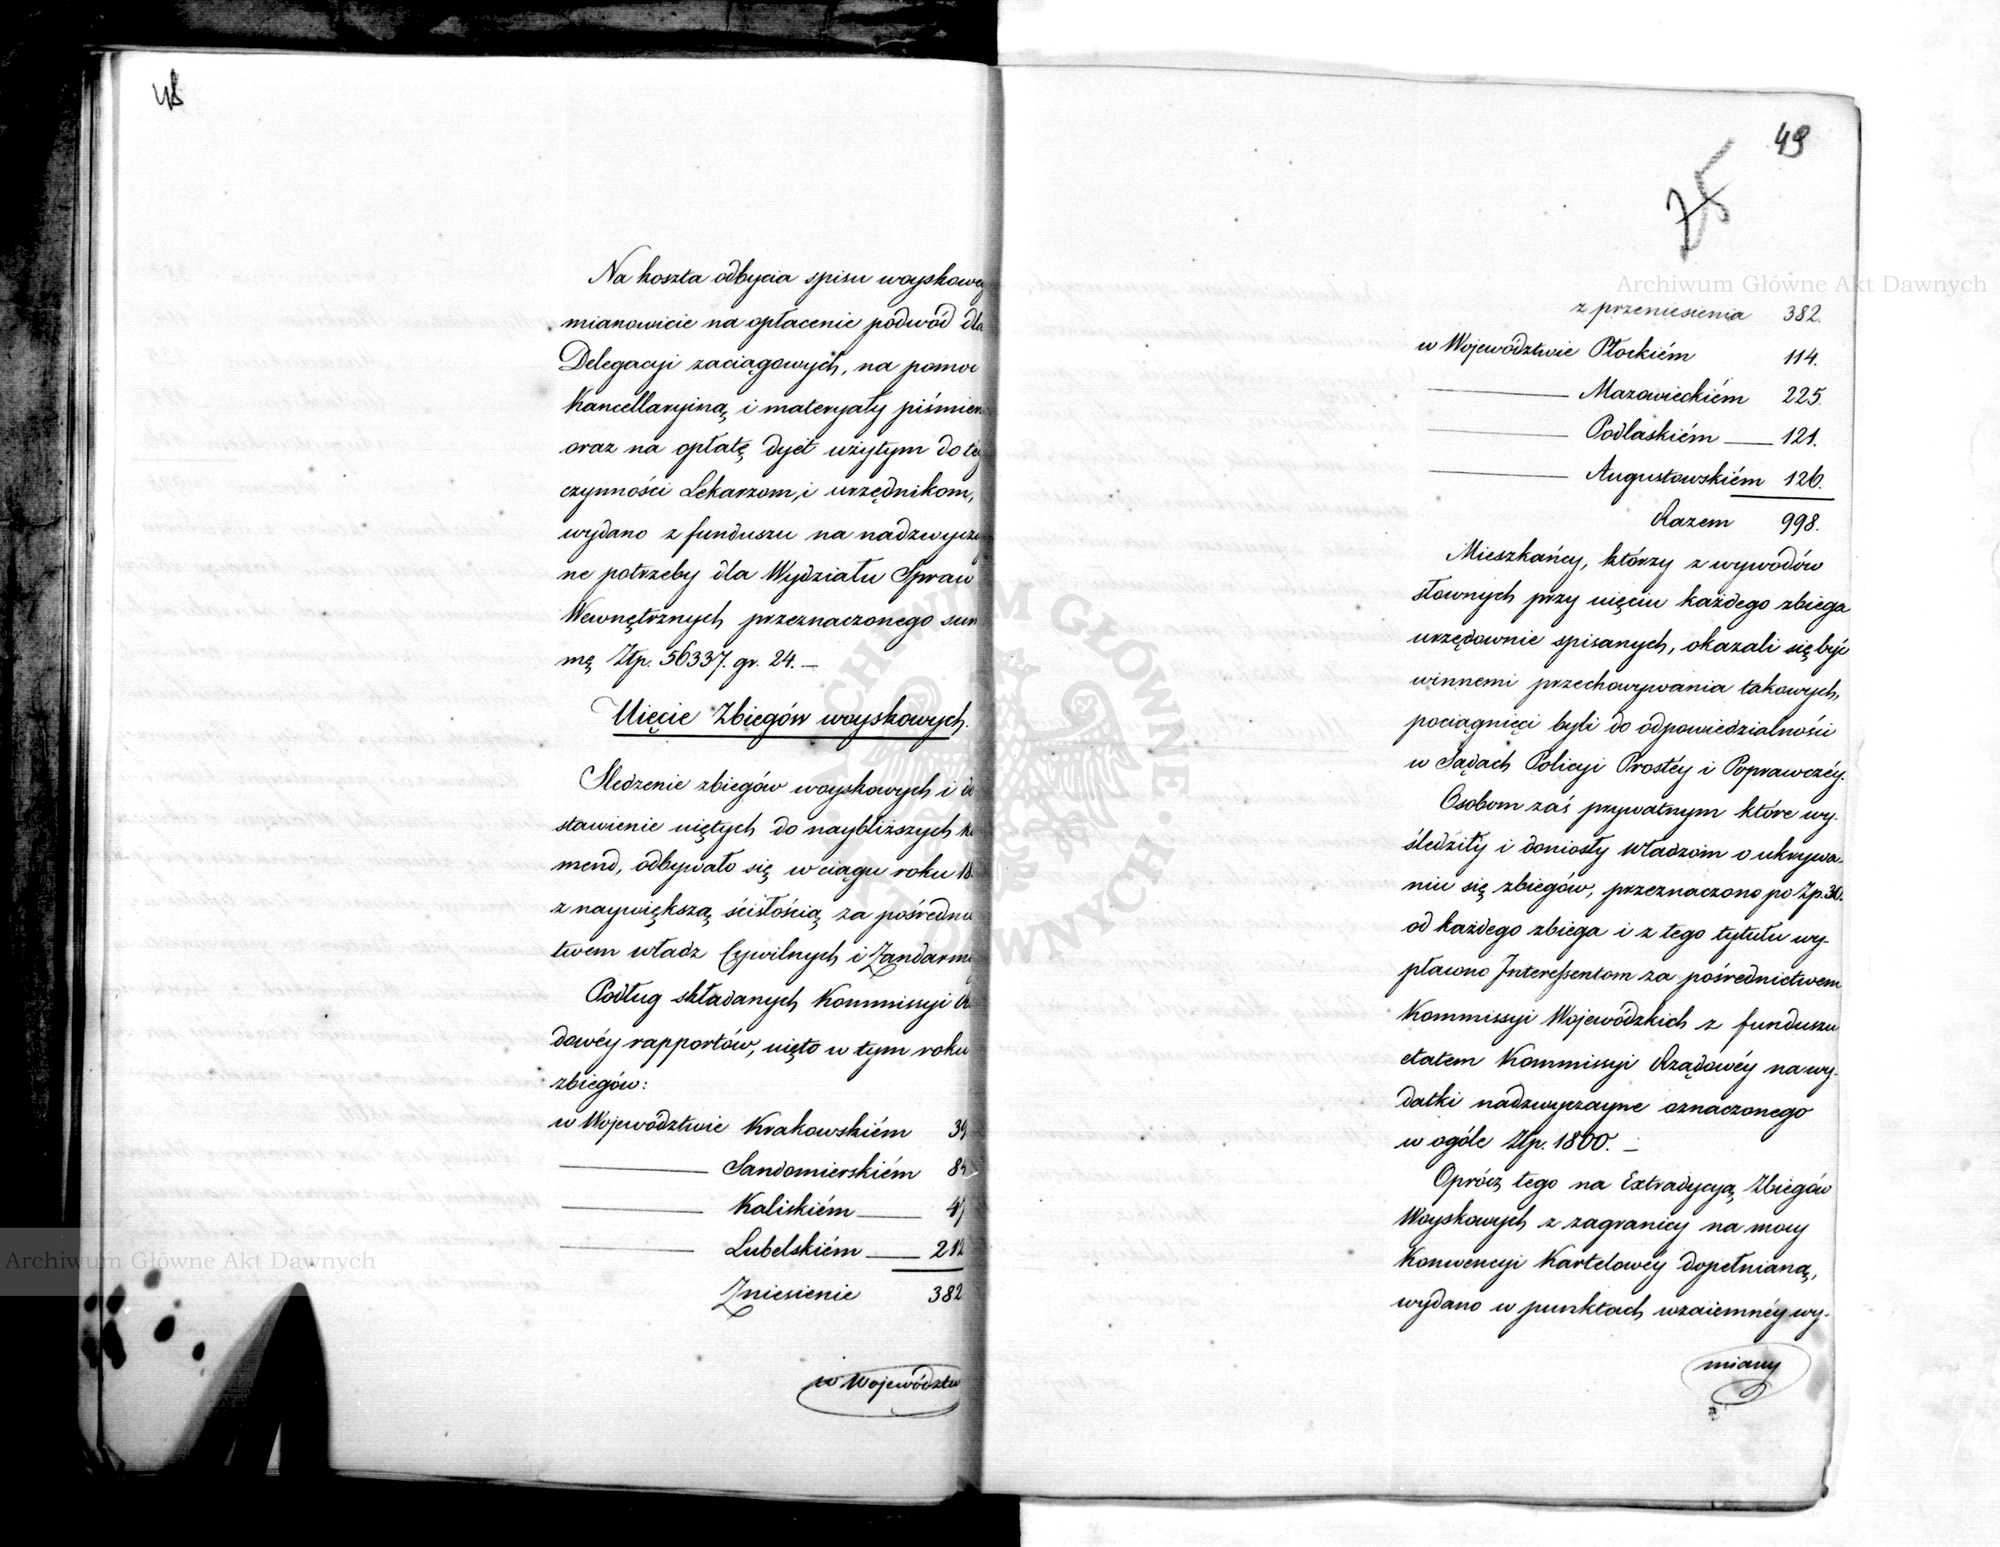 48
Na koszta odbycia spisu woyskowey
mianowicie na opłacenie podwód dla
Delegacyi zaciągowych, na pomoc
Kancellaryiną, i materyały piśmien
oraz na opłatę dyet użytym do tey
czynności Lekarzom, i urzędnikom,
wydano z funduszu na nadzwyczay
ne potrzeby dla Wydziału Spraw
Wewnętrznych przeznaczonego sum
mę Złp. 56337. gr. 24. —
Ujęcie Zbiegów woyskowych.
Śledzenie zbiegów woyskowych i do
stawienie ujętych do naybliższych ko
mend, odbywało się w ciągu roku 18
z naywiększą ścisłością za pośrednic
twem władz Cywilnych i Żandarme
Podług składanych Kommissyi Rzą
dowéy rapportów, ujęto w tym roku
zbiegów:
w Województwie Krakowskiém 39
——— Sandomierskiém 84
——— Kaliskiém —— 47
——— Lubelskiém —— 212
Zniesienie 382
w Województw
49
25
Archiwum Główne Akt Dawnych
z przeniesienia 382.
w Województwie Płockiém 114.
——— Mazowieckiém 225.
——— Podlaskiém —— 121.
——— Augustowskiém 126.
Razem 998.
Mieszkańcy, którzy z wywodów
słownych przy ujęciu każdego zbiega
urzędownie spisanych, okazali się być
winnemi przechowywania takowych,
pociągnięci byli do odpowiedzialności
w Sądach Policyi Prostéy i Poprawczéy.
Osobom zaś prywatnym które wy-
śledziły i doniosły władzom o ukrywa-
niu się zbiegów, przeznaczono po Zp. 30.
od każdego zbiega i z tego tytułu wy-
płacono Interessentom za pośrednictwem
Kommissyi Wojewódzkich z funduszu
etatem Kommissyi Rządowéy na wy-
datki nadzwyczayne oznaczonego
w ogóle Złp. 1800. —
Oprócz tego na Extradycyą Zbiegów
Woyskowych z zagranicy na mocy
Konwencyi Kartelowéy dopełnianą,
wydano w punktach wzaiemnéy wy-
miany
Archiwum Główne Akt Dawnych
ARCHIWUM GŁÓWNE AKT DAWNYCH